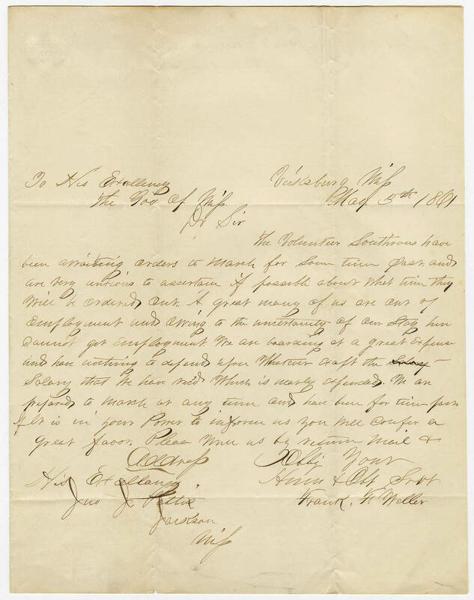 Vicksburg Miss
To His Excellency May 5th 1861
the Gov Of Miss
Dr Sir
The Volunteer Southrons have
been awaiting orders to March for Some time past and
are very anxious to assertain if possible about what time they
Will be ordered out. A great many of us are out of
Employment and owing to the uncertainty of our Stay here
Cannot get Employment We are boarding at a great Expense
and have nothing to defend upon Whatever Except the
Salary that We have and Which is nearly We are
prepared to March at any time and have been for time past
If it is in your Power to inform us you Will Confer a
great favor. Please Write us by return Mail &
Address Oblg Your
His Excellency & Obt Srvt
Jno J Pettus Frank. F. Miller
Jackson
Miss